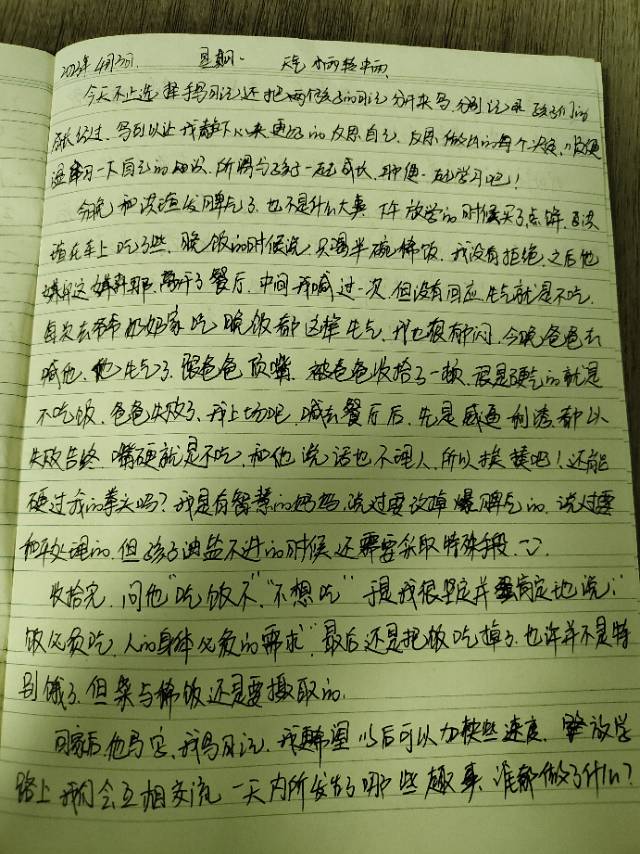 2023年4月3日. 星期一 天气 小雨转中雨
今天不止选择写日记,还把两个孩子的日记分开来写,分别记录孩子们的
成长经过,写日记让我静下心来更好的反思自己,反思做出的每个决定,
学习一下自己的 所谓与孩子一起成长,那便一起学习吧!
今晚和谈 发脾气了,也不是什么大事,下午放学的时候买了点饼,
在车上吃了些,晚饭的时候说,只喝半碗稀饭,我没有拒绝,之后他
离开了餐厅,中间我喊过一次,但没有回应,生气就是不吃,
每次去爷爷奶奶家吃晚饭都这样生气,我也很郁闷,今晚爸爸去
喊他,他生气了,跟爸爸顶嘴,被爸爸收拾了一顿,很是硬气的就是
不吃饭,爸爸失败了,我上场吧,喊到餐厅后,先是威逼利诱都以
失败告终,嘴硬就是不吃,和他说话也不理人,所以挨揍吧!还能
硬过我的拳头吗?我是有智慧的妈妈,说过要改掉爆脾气的,说过要
和平处理的,但孩子油盐不进的时候还需要采取特殊手段.
收拾完,问他"吃饭不","不想吃"于是我很坚定并肯定地说:
"饭必须吃,人的身体必须的需求"最后还是把饭吃掉了,也许并不是特
别饿了,但菜与稀饭还是要摄取的.
回家后,他写字,我写日记,我更希望以后可以加快些速度,放学
路上我们会互相交流一天内所发生了哪些趣事,谁都做了什么?